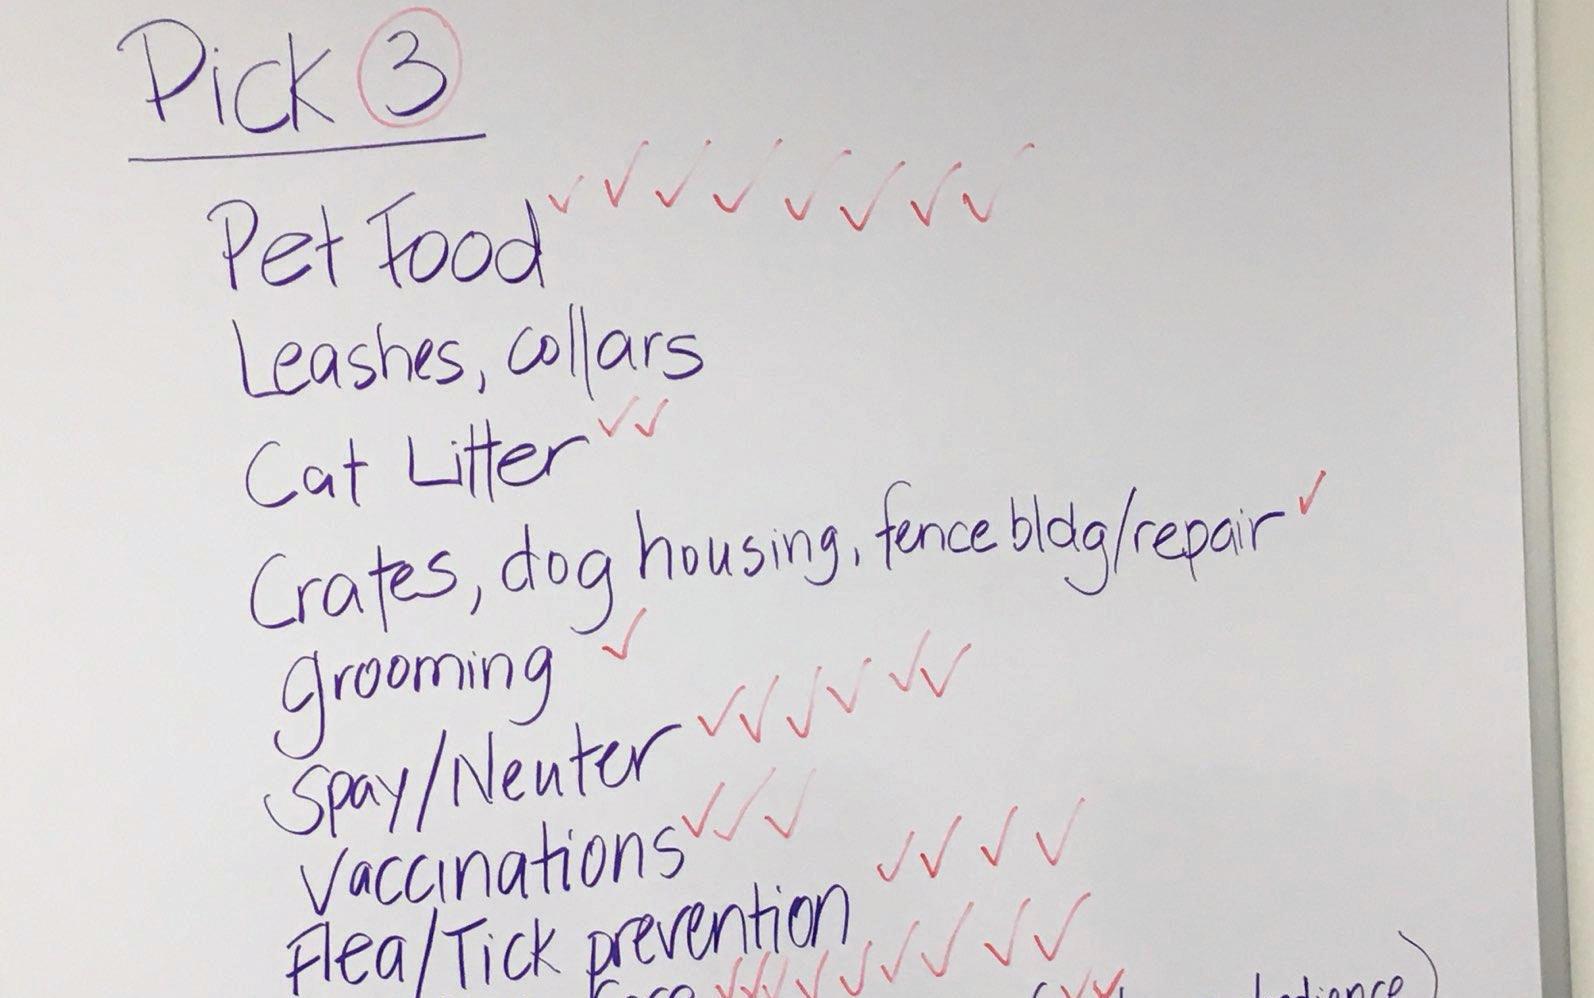 Pick 3
Pet Food ✓ ✓ ✓ ✓ ✓ ✓ ✓ ✓
Leashes, collars
Cat Litter ✓ ✓
Crates, dog housing, fence bldg/repair ✓
grooming ✓
Spay/Neuter ✓ ✓ ✓ ✓ ✓ ✓
Vaccinations ✓ ✓ ✓
Flea/Tick prevention ✓ ✓ ✓ ✓